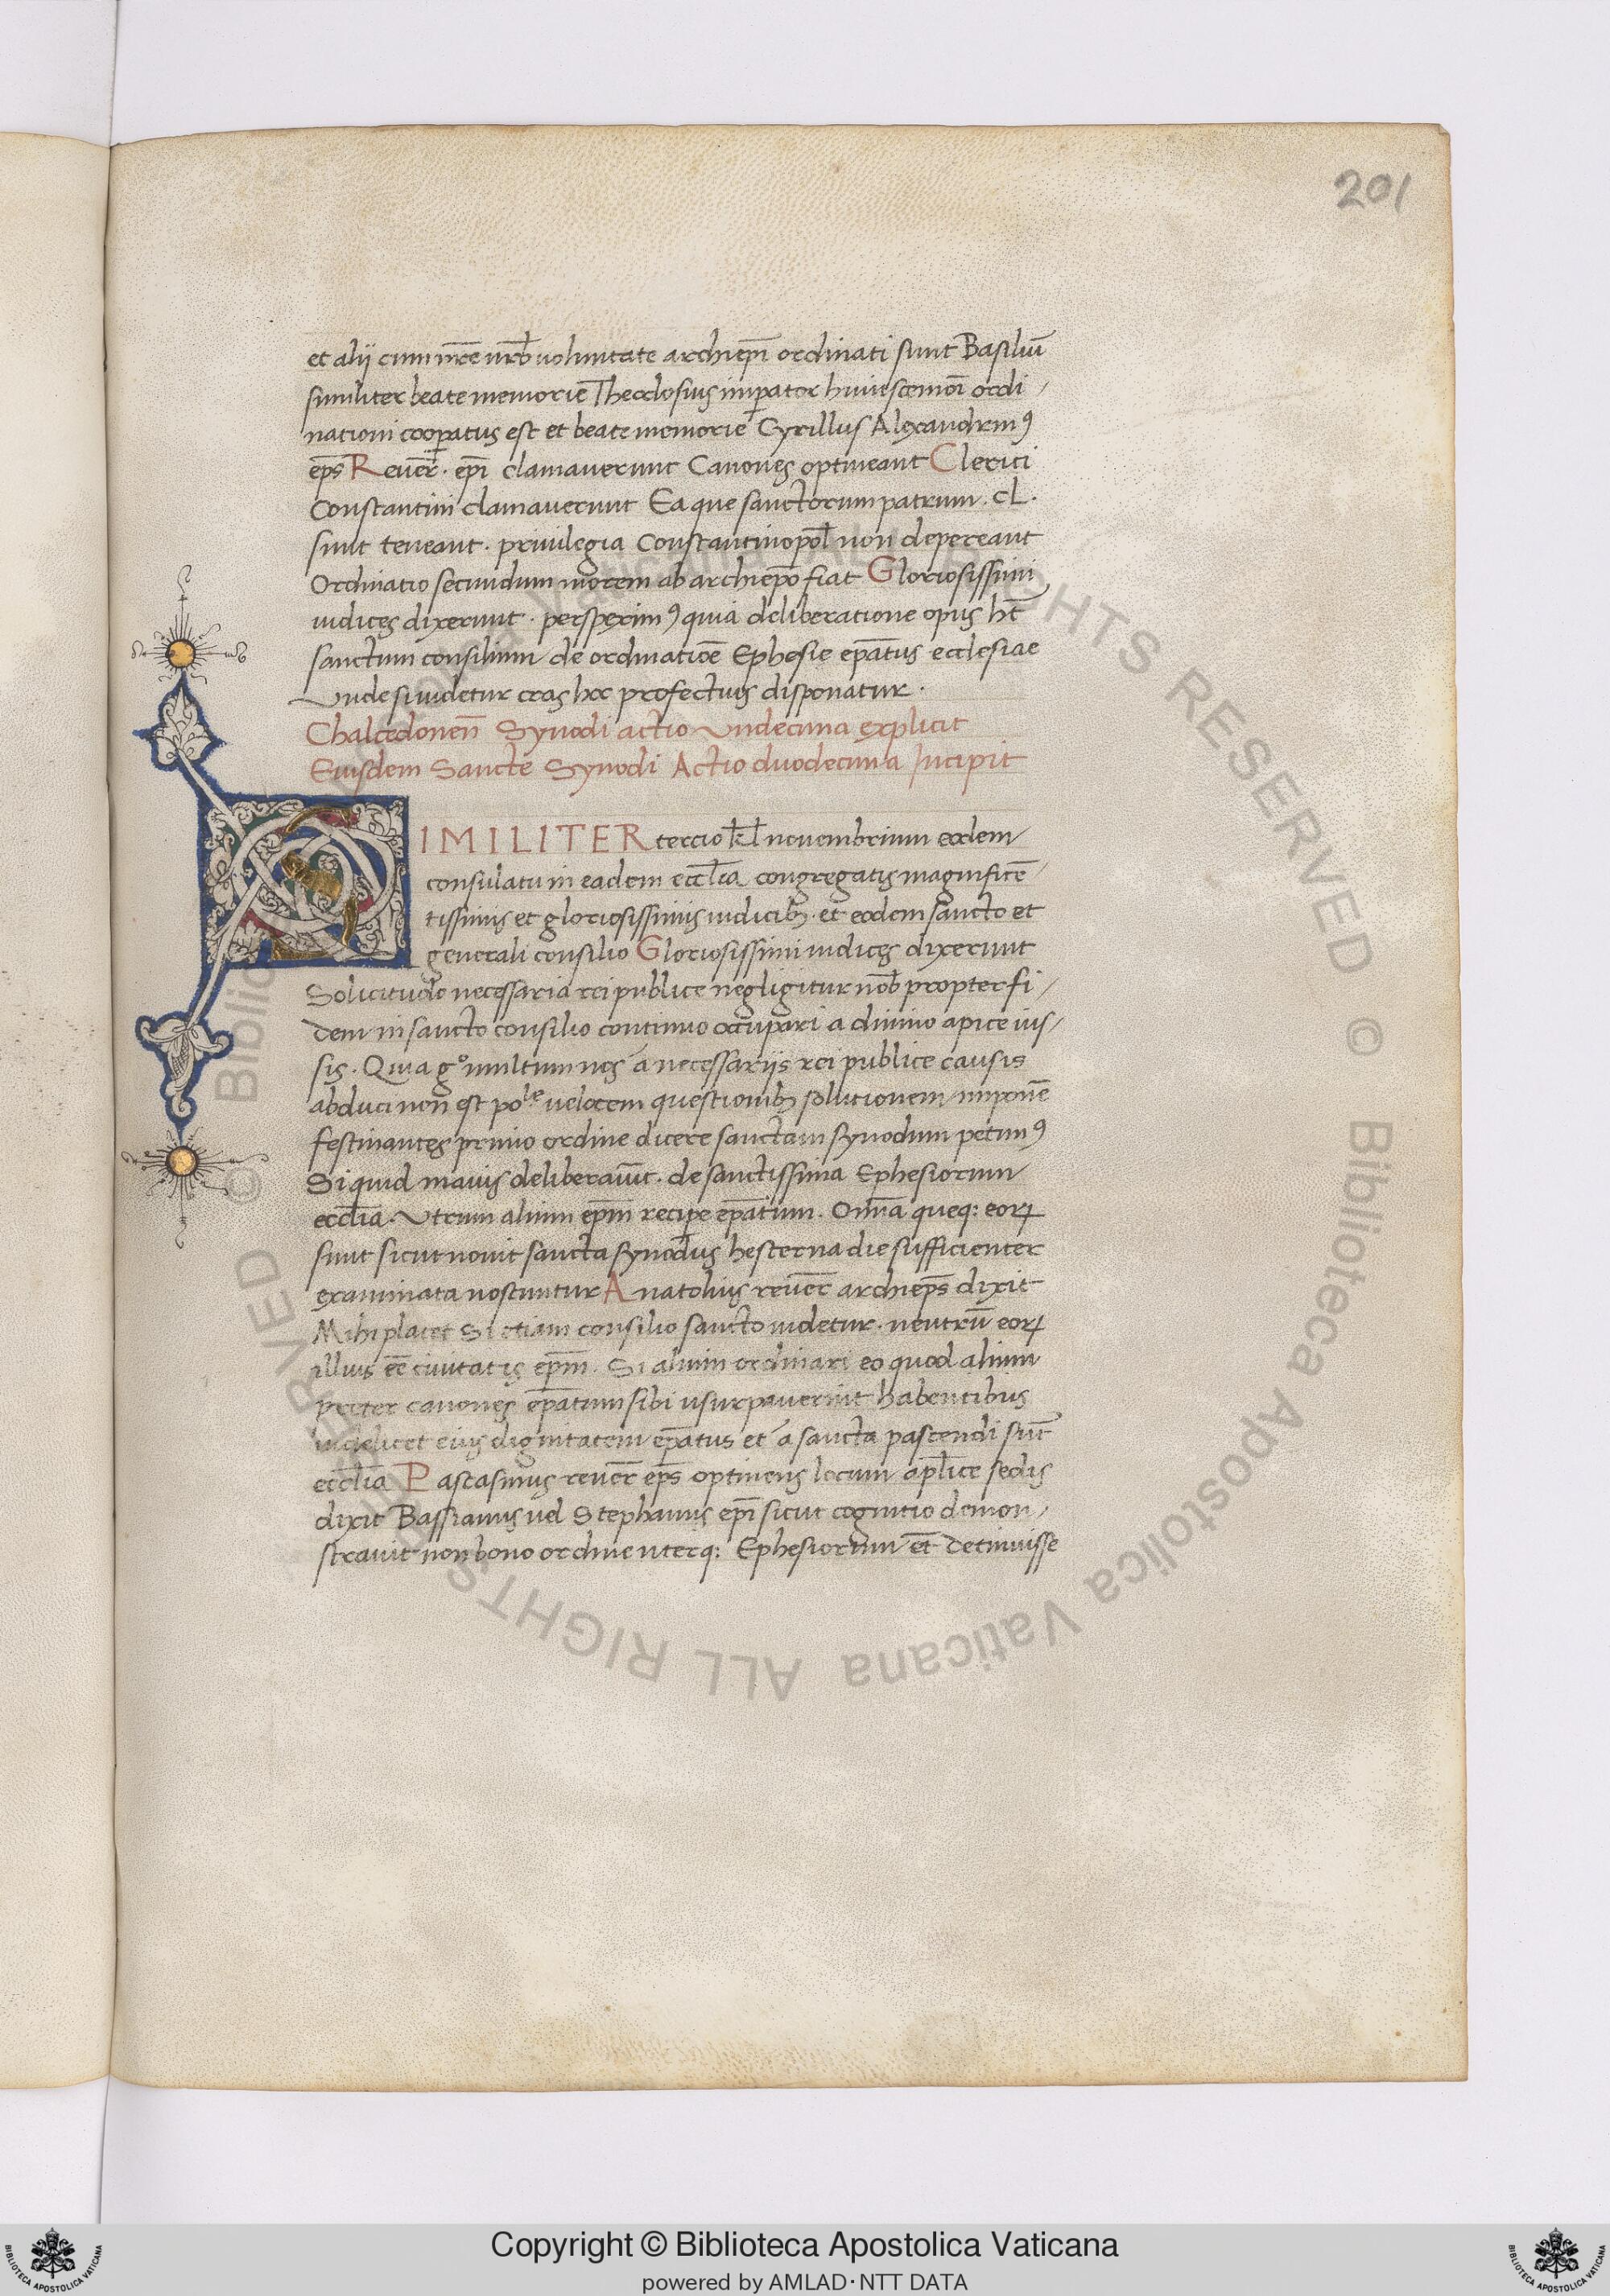 201
et alii cum nr̄e urb̄ voluntate archiep̄i ordinati sunt Basiliū
similiter beate memorie Theodosius imperator huiuscemōi ordi
nationi cooperatus est et beate memorie Cyrillus Alexandrinꝰ
ep̄s Reuer̄. ep̄i clamauerunt Canones optineant Clerici
Constantini clamauerunt Ea que sanctorum patrum. cL.
sunt teneant. priuilegia Constantinopol̄ non depereant
Ordinatio secundum morem ab archiep̄o fiat Gloriosissimi
iudices dixerunt. perspeximꝰ quia deliberatione opus ht̄
sanctum consilium de ordinatiōe Ephesie ep̄atus ecclesiae
Unde si uidetur cras hoc profectius disponatur.
Chalcedonen̄ Synodi actio Undecima explicit
Eiusdem Sancte Synodi Actio duodecima Incipit
SIMILITER tercio kl̄ novembrium eodem
consulatu in eadem eccl̄ia congregatis magnificē
tissimis et gloriosissimis iudicibꝫ. et eodem sancto et
generali consilio Gloriosissimi iudices dixerunt
Solicitudo necessaria rei publice negligitur nob̄ propter fi
dem in sancto consilio continuo occupari a diuino apice ius
sis. Quia gº multum nos a necessariis rei publice causis
abduci non est poˡᵉ uelocem questionibꝫ solutionem imponē
festinantes primo ordine dicere sanctam synodum petimꝰ
Si quid mauis deliberauūt. de sanctissima Ephesiorum
eccl̄ia. Utrum alium ep̄m recipe ep̄atum. Om̄ia queq: eoꝝ
sunt sicut nouit sancta synodus hesterna die sufficienter
examinata noscuntur Anatolius reuer̄ archiep̄s dixit
Mihi placet Si etiam consilio sancto uidetur. neutrū eoꝝ
illius eē ciuitatis ep̄m. Si alium ordinari eo quod alium
preter canones ep̄atum sibi usurpauerint habentibus
uidelicet eius dignitatem ep̄atus et a sancta pascendi sūt
eccl̄ia Pascasinus reuer̄ ep̄s optinens locum apl̄ice sedis
dixit Bassianus uel Stephanus ep̄i sicut cognitio demon
strauit non bono ordine uterq: Ephesiorum et̄ detinuisse
© Biblioteca Apostolica Vaticana ALL RIGHTS RESERVED © Biblioteca Apostolica Vaticana ALL RIGHTS RESERVED
Copyright © Biblioteca Apostolica Vaticana
powered by AMLAD·NTT DATA
BIBLIOTECA APOSTOLICA VATICANA
BIBLIOTECA APOSTOLICA VATICANA